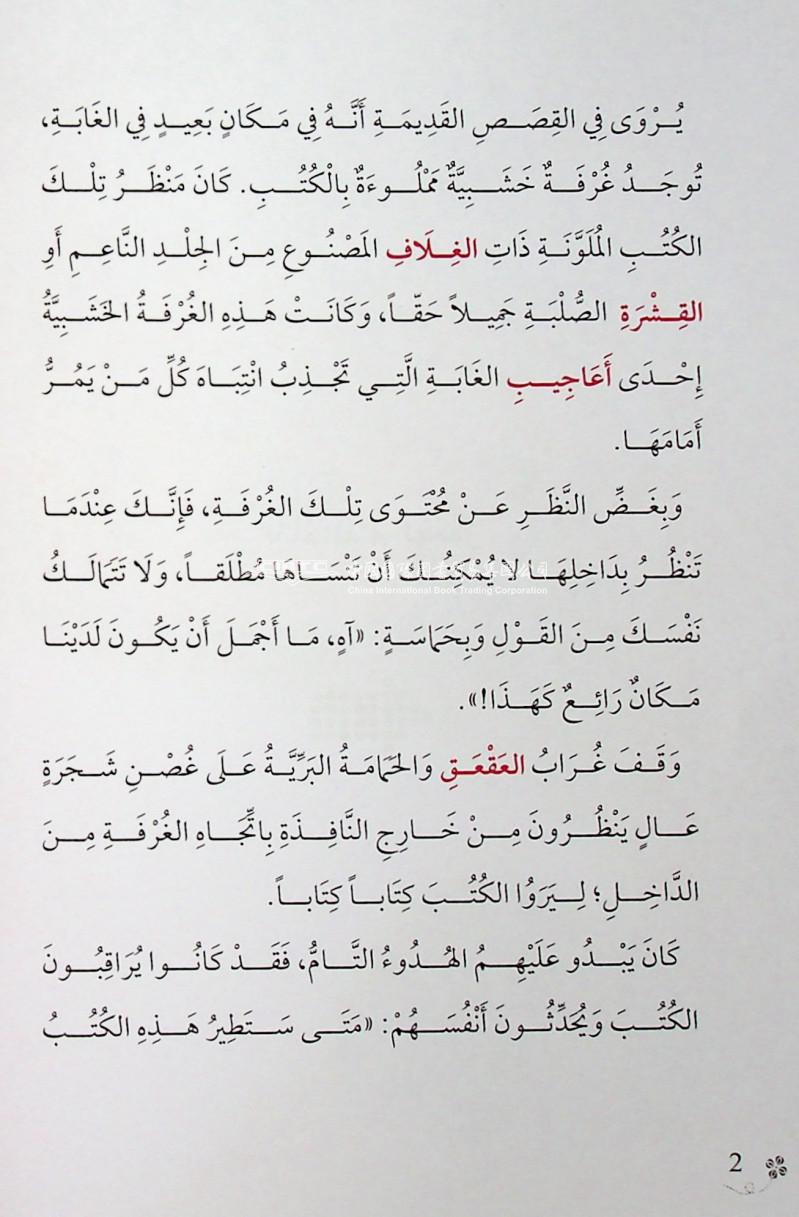 يُرْوَى فِي القِصَصِ القَدِيمَةِ أَنَّهُ فِي مَكَانٍ بَعِيدٍ فِي الغَابَةِ،
تُوجَدُ غُرْفَةٌ خَشَبِيَّةٌ مَمْلُوءَةٌ بِالْكُتُبِ. كَانَ مَنْظَرُ تِلْكَ
الكُتُبِ المُلَوَّنَةِ ذَاتِ الغِلَافِ المَصْنُوعِ مِنَ الجِلْدِ النَّاعِمِ أَوِ
القِشْرَةِ الصُّلْبَةِ جَمِيلاً حَقّاً، وَكَانَتْ هَذِهِ الغُرْفَةُ الخَشَبِيَّةُ
إِحْدَى أَعَاجِيبِ الغَابَةِ الَّتِي تَجْذِبُ انْتِبَاهَ كُلِّ مَنْ يَمُرُّ
أَمَامَهَا.
وَبِغَضِّ النَّظَرِ عَنْ مُحْتَوَى تِلْكَ الغُرْفَةِ، فَإِنَّكَ عِنْدَمَا
تَنْظُرُ بِدَاخِلِهَا لا يُمْكِنُكَ أَنْ تَنْسَاهَا مُطْلَقاً، وَلَا تَتَمَالَكُ
China International Book Trading Corporation
نَفْسَكَ مِنَ القَوْلِ وَبِحَمَاسَةٍ: «آهٍ، مَا أَجْمَلَ أَنْ يَكُونَ لَدَيْنَا
مَكَانٌ رَائِعٌ كَهَذَا!».
وَقَفَ غُرَابُ العَقْعَقِ وَالحَمَامَةُ البَرِّيَّةُ عَلَى غُصْنِ شَجَرَةٍ
عَالٍ يَنْظُرُونَ مِنْ خَارِجِ النَّافِذَةِ بِاتِّجَاهِ الغُرْفَةِ مِنَ
الدَّاخِلِ؛ لِيَرَوُا الكُتُبَ كِتَاباً كِتَاباً.
كَانَ يَبْدُو عَلَيْهِمُ الهُدُوءُ التَّامُّ، فَقَدْ كَانُوا يُرَاقِبُونَ
الكُتُبَ وَيُحَدِّثُونَ أَنْفُسَهُمْ: «مَتَى سَتَطِيرُ هَذِهِ الكُتُبُ
2